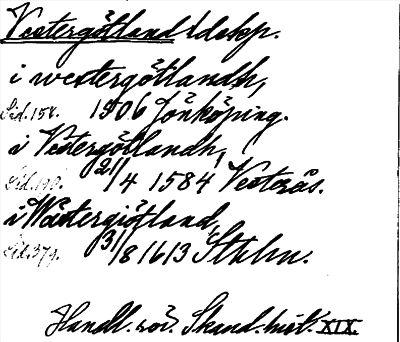 Vestergötland
i westergötlandh,
Sid. 158. 1506 Jönköping.
i Vestergötlandh,
Sid. 190. 21/4 1584 Vesterås.
i Wästergiötland,
Sid. 379. 31/8 1613 Sthlm.
Handl. rör. Skand. hist. XIX.